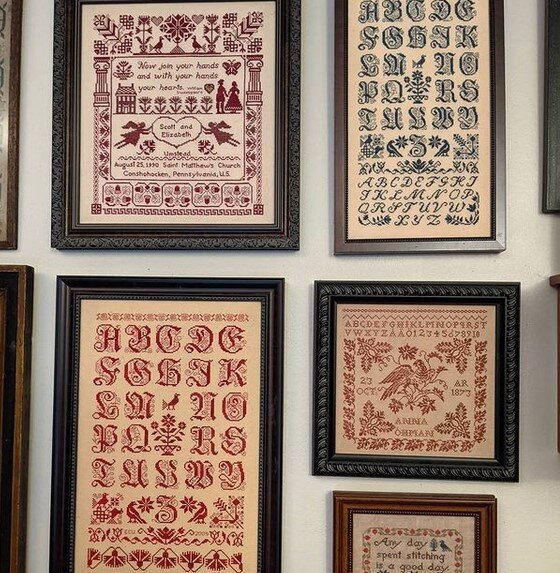 Now join your hands
and with your hands
your hearts. William
Shakespeare
Scott and
Elizabeth
Umstead
August 25, 1990 Saint Matthew's Church
Conshohocken, Pennsylvania, U.S.
ABCDE
FGHIK
LM NO
PQ RS
TUVWY
Z
ABCDEFGHIJ
KLMNOP
QRSTUVW
XYZ
ABCDE
FGHIK
LM NO
PQ RS
TUVWY
Z
©2005
ABCDEFGHIKLMNOPQRST
VWXYZÅÄÖ12345678910
23 AR
OCT. 1873
ANNA
ÖHMAN
Any day
spent stitching
is a good day